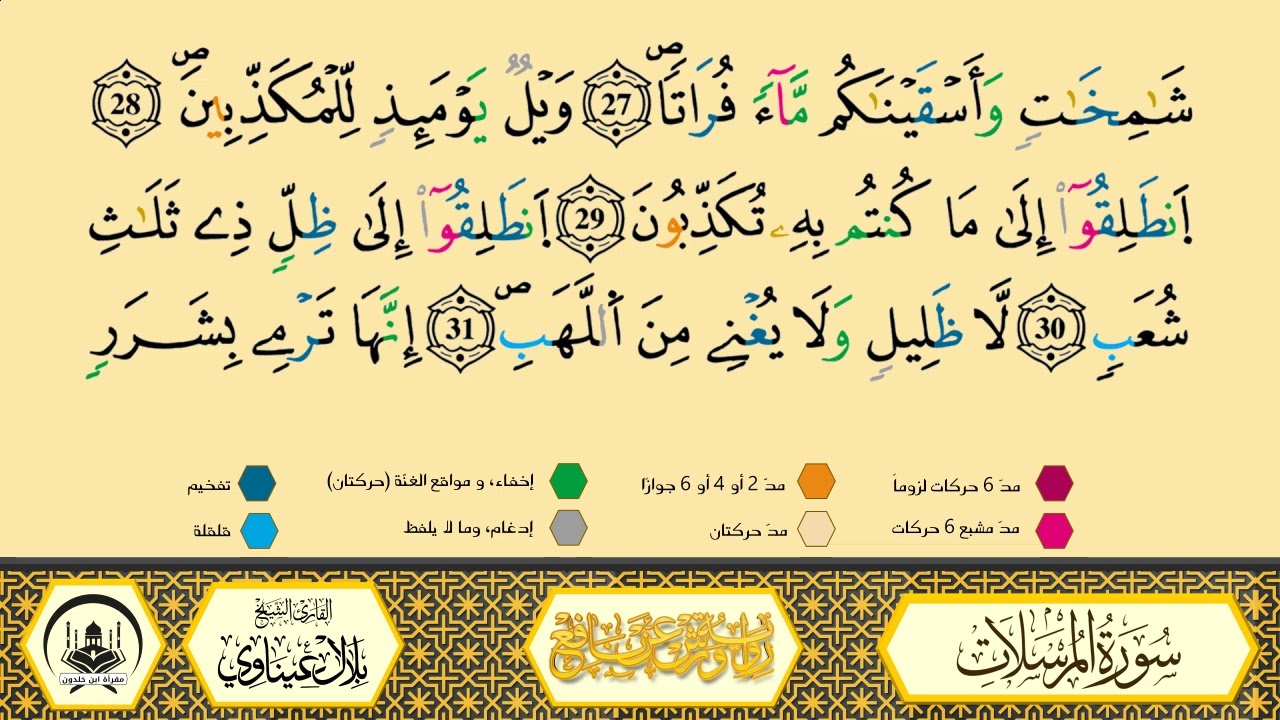 شَٰمِخَٰتٖ وَأَسْقَيْنَٰكُم مَّآءٗ فُرَاتاٗۖ 27 وَيْلٞ يَوْمَئِذٖ لِّلْمُكَذِّبِينَۖ 28
اَ۪نطَلِقُوٓاْ إِلَىٰ مَا كُنتُم بِهِۦ تُكَذِّبُونَ 29 اَ۪نطَلِقُوٓاْ إِلَىٰ ظِلّٖ ذِے ثَلَٰثِ
شُعَبٖ 30 لَّا ظَلِيلٖ وَلَا يُغْنِے مِنَ اَ۬للَّهَبِۖ 31 إِنَّهَا تَرْمِے بِشَرَرٖ
مدّ 6 حركات لزوماً مدّ 2 أو 4 أو 6 جوازًا إخفاء، و مواقع الغنّة (حركتان) تفخيم
مدّ مشبع 6 حركات مدّ حركتان إدغام، وما لا يلفظ قلقلة
سُورَةُ المُرْسَلَاتِ
رواية ورش عن نافع
القارئ الشيخ
بلال عيناوي
مقرأة ابن خلدون